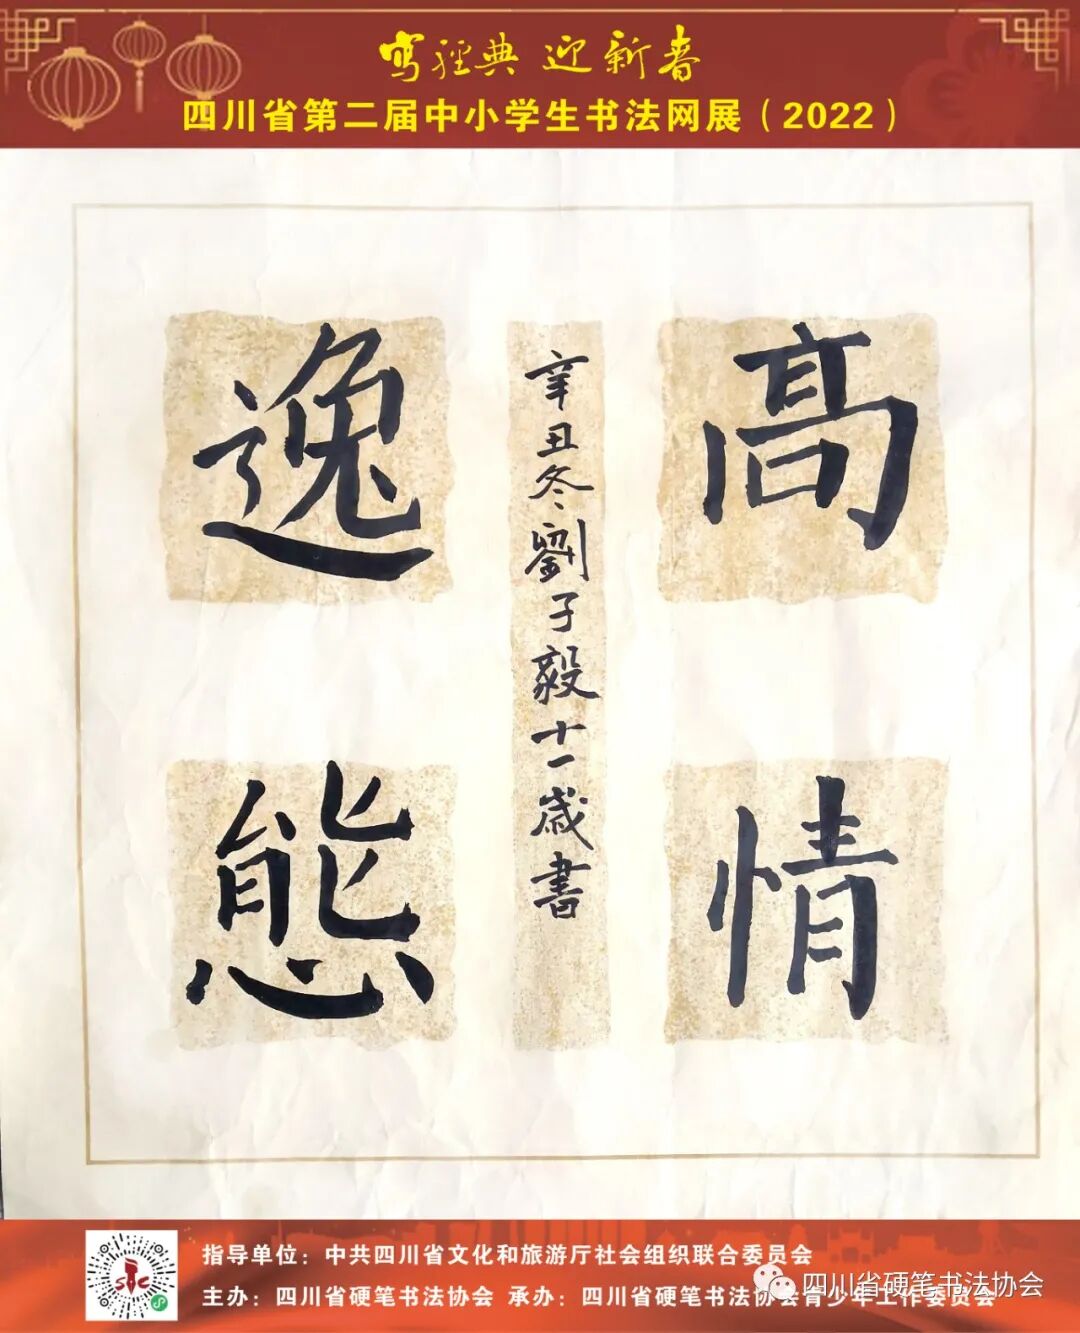 写經典 迎新春
四川省第二届中小学生书法网展（2022）
高情
辛丑冬劉子毅十一歲書
逸態
指导单位：中共四川省文化和旅游厅社会组织联合委员会
主办：四川省硬笔书法协会 承办：四川省硬笔书法协会青少年工作委员会
四川省硬笔书法协会